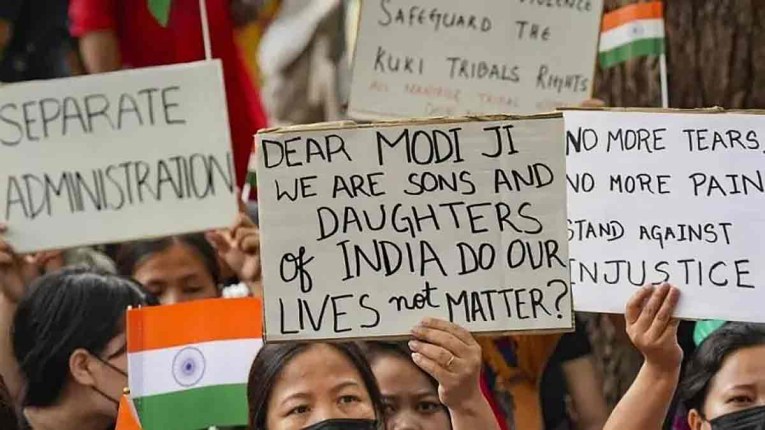 VIOLENCE
SAFEGUARD THE
KUKI TRIBALS RIGHTS
ALL MANIPUR TRIBAL
SEPARATE
ADMINISTRATION
DEAR MODI JI
WE ARE SONS AND
DAUGHTERS
of INDIA DO OUR
LIVES not MATTER?
NO MORE TEARS,
NO MORE PAIN
STAND AGAINST
INJUSTICE